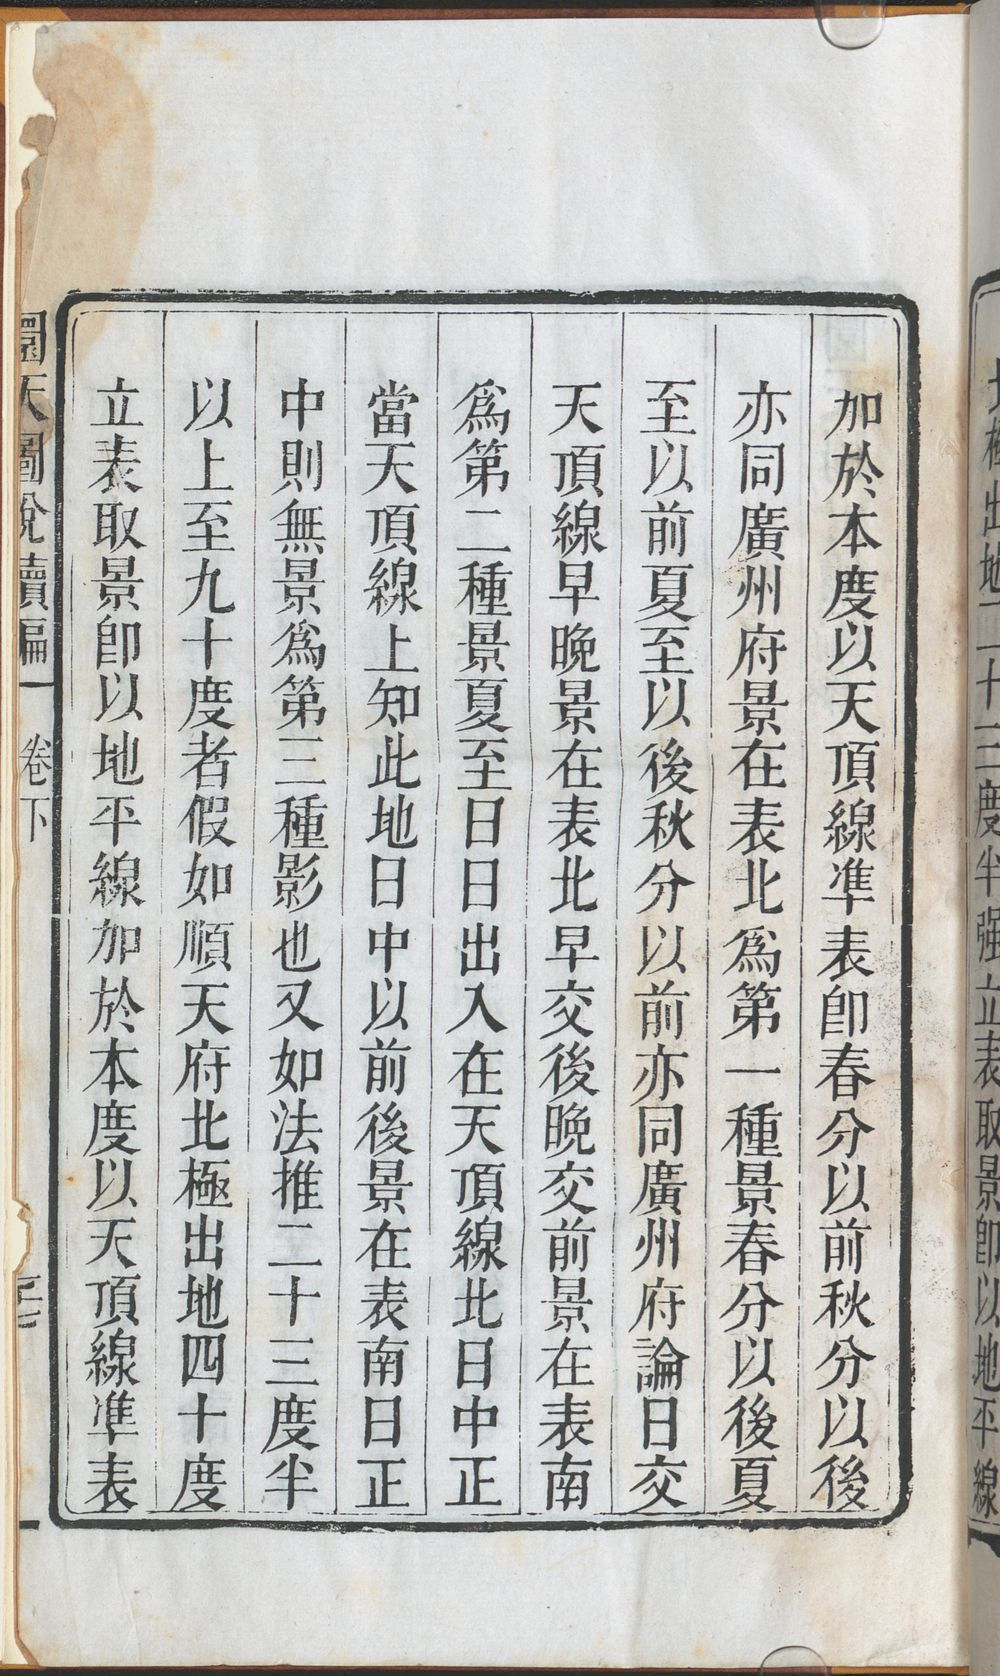 北極出地二十三度半强立表取景卽以地平線
加於本度以天頂線準表卽春分以前秋分以後
亦同廣州府景在表北爲第一種景春分以後夏
至以前夏至以後秋分以前亦同廣州府論日交
天頂線早晚景在表北早交後晚交前景在表南
爲第二種景夏至日日出入在天頂線北日中正
當天頂線上知此地日中以前後景在表南日正
中則無景爲第三種影也又如法推二十三度半
以上至九十度者假如順天府北極出地四十度
立表取景卽以地平線加於本度以天頂線準表
圜天圖說續編 卷下